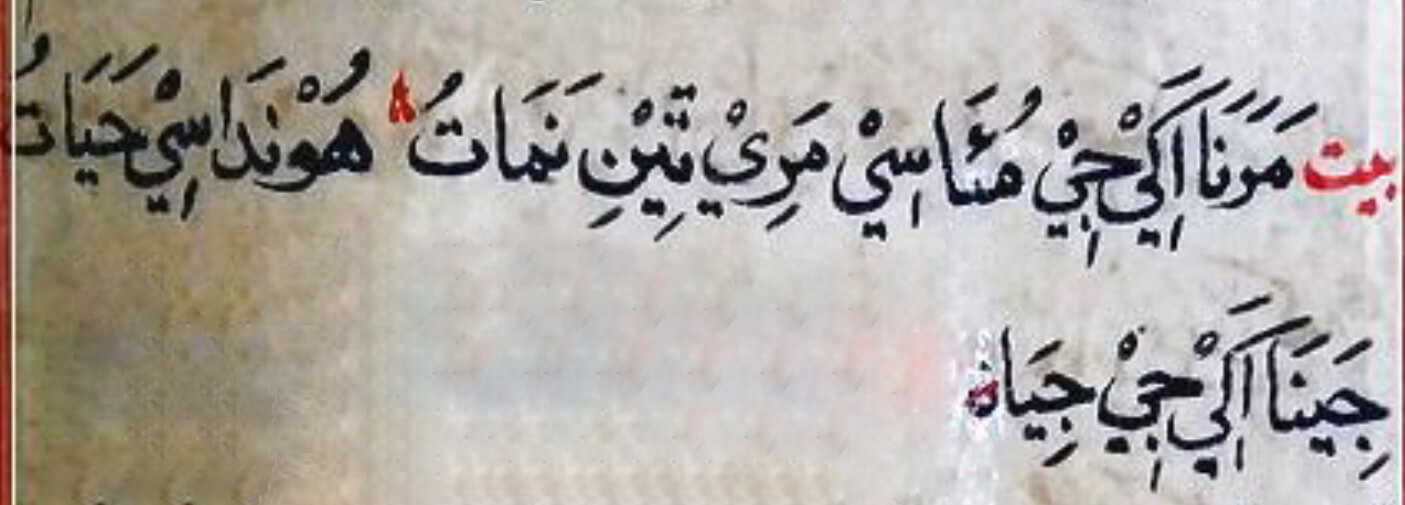 بيت مَرَنَا اَكِيْ جِيْ مُئَا سِيْ مَرِيْ تِيْنِ نَمَاتُ هُوْنَدَا سِيْ حَيَاتُ
جِيَنَا اَكِيْ جِيْ جِيَا